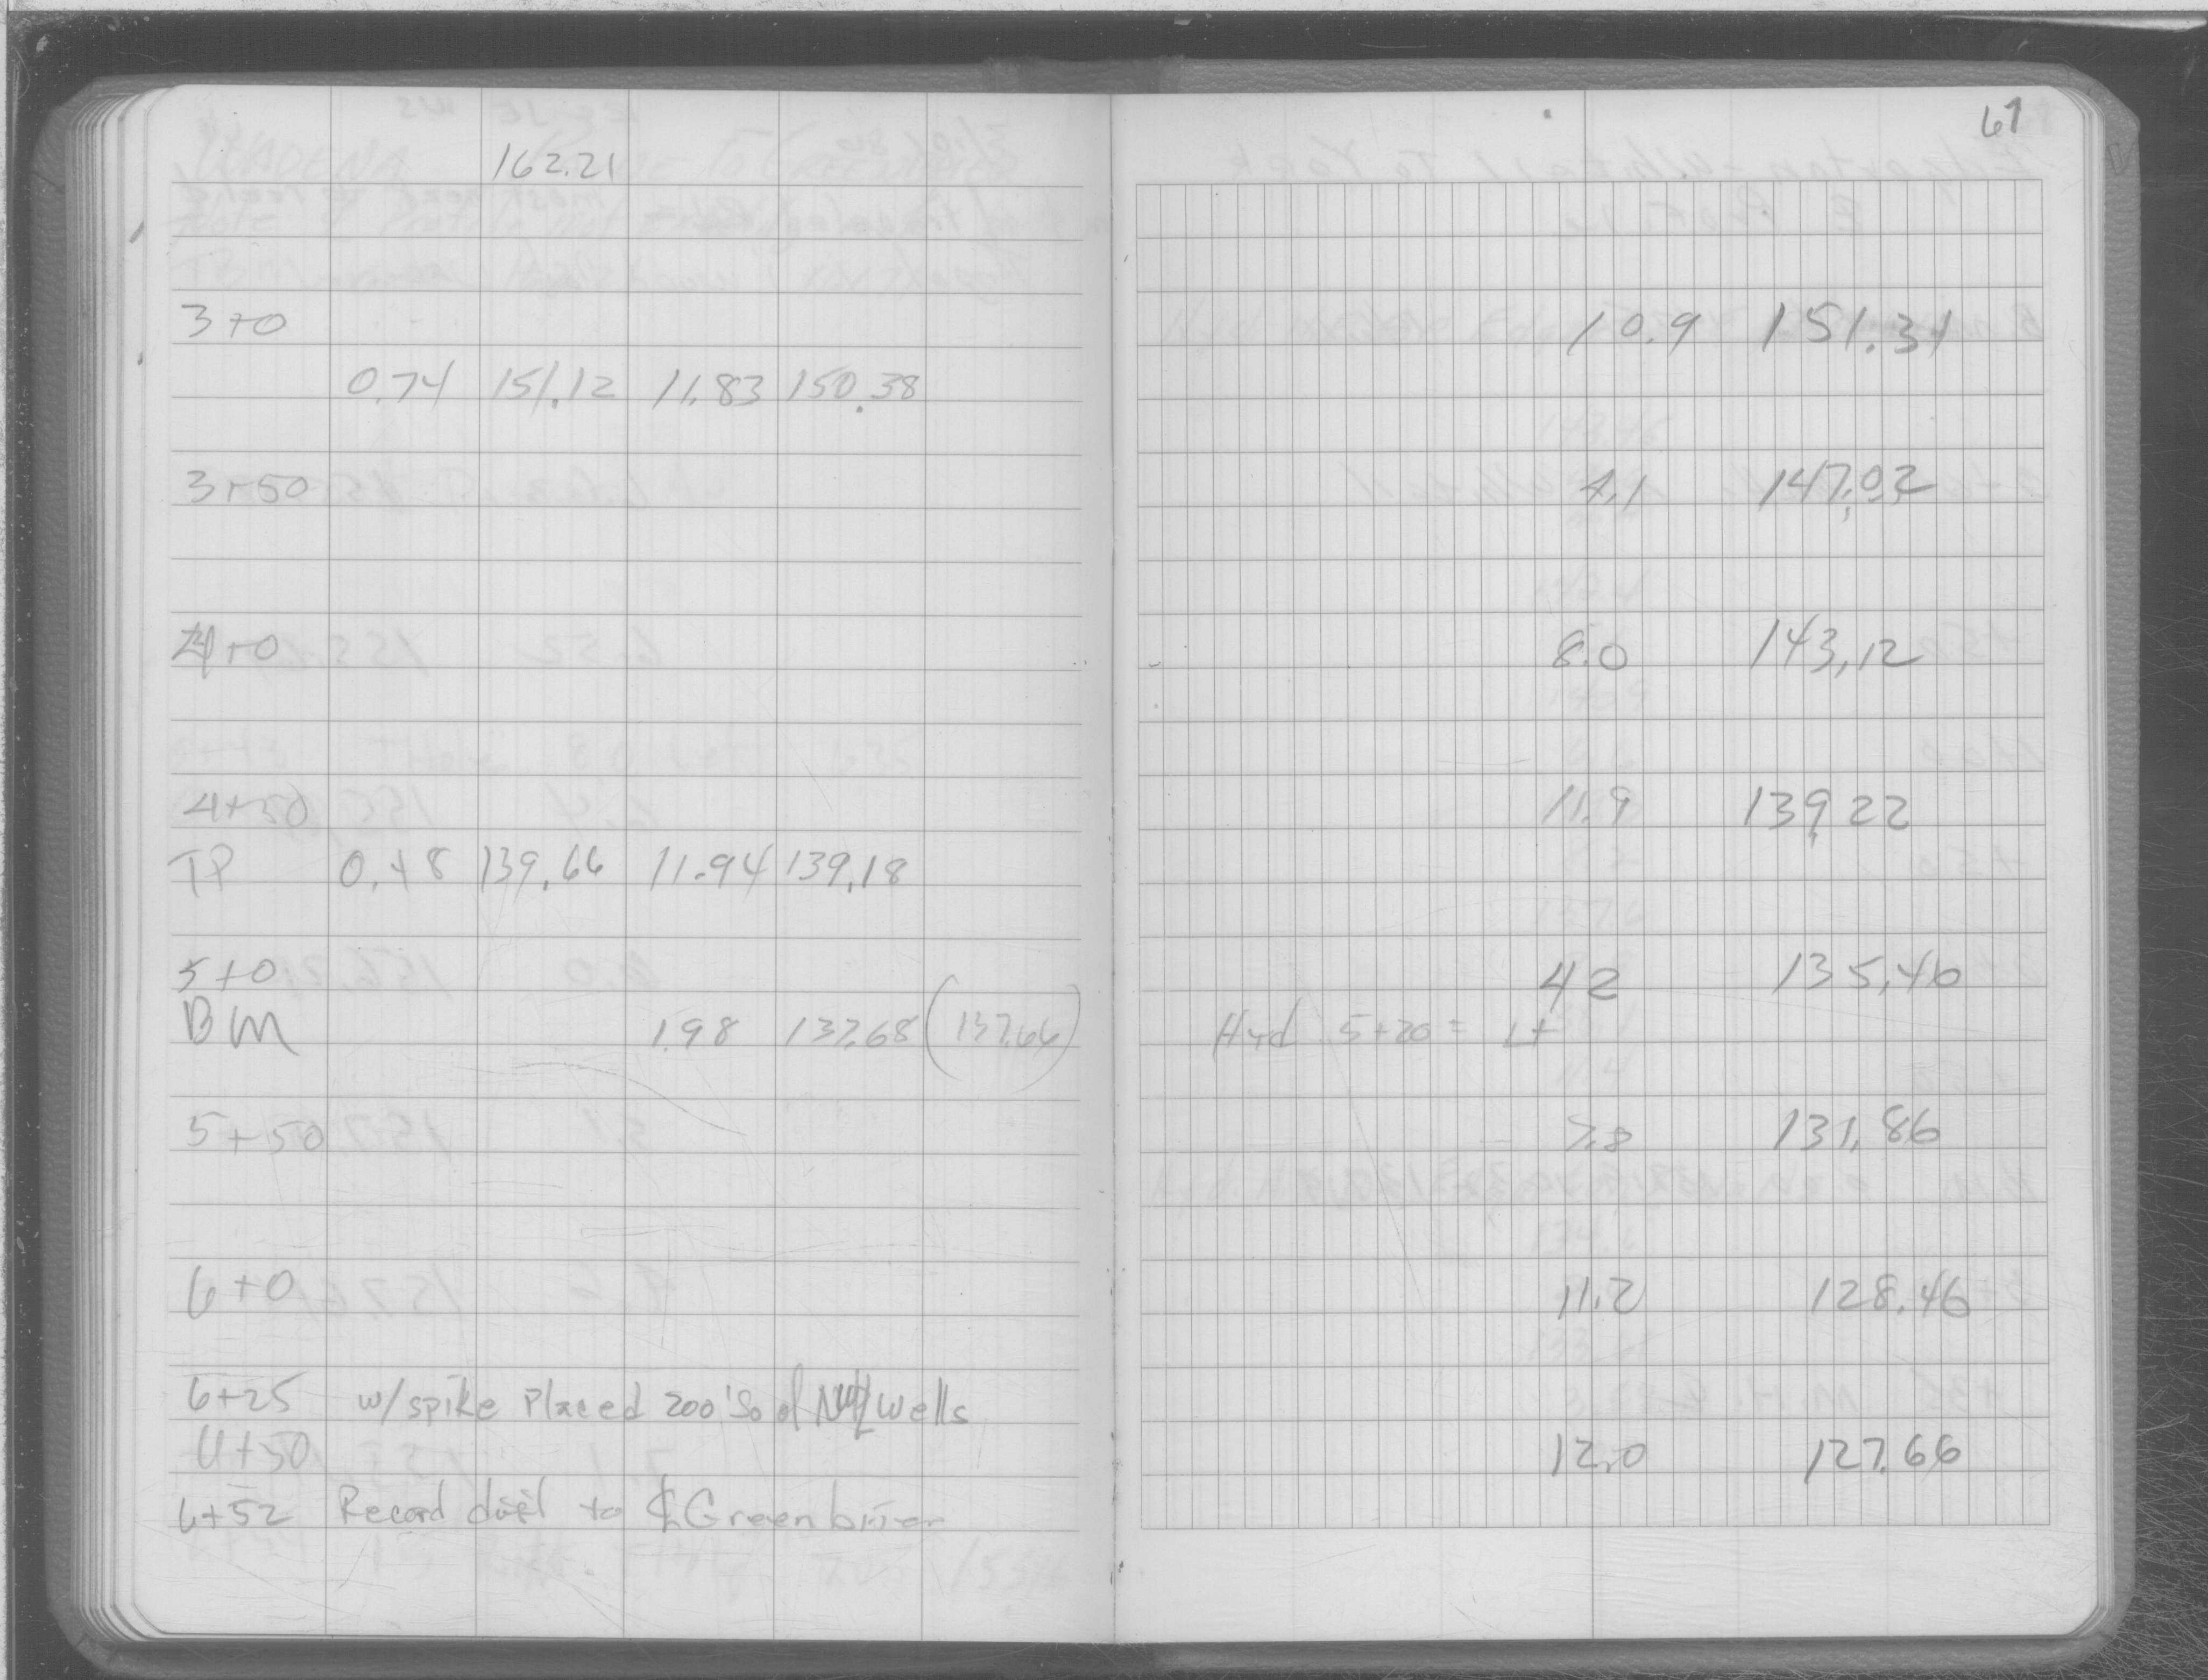 67
162.21
3+0 10.9 151.31
0.74 151.12 11.83 150.38
3+50 4.1 147.02
4+0 8.0 143.12
4+50 11.9 139.22
TP 0.48 139.66 11.94 139.18
5+0 4.2 135.46
BM 1.98 137.68 (137.66) Hyd 5+20 = Lt
5+50 7.8 131.86
6+0 11.2 128.46
6+25 w/spike Placed 200' So of Wells
6+50 12.0 127.66
6+52 Record dist to ℄ Greenbrier